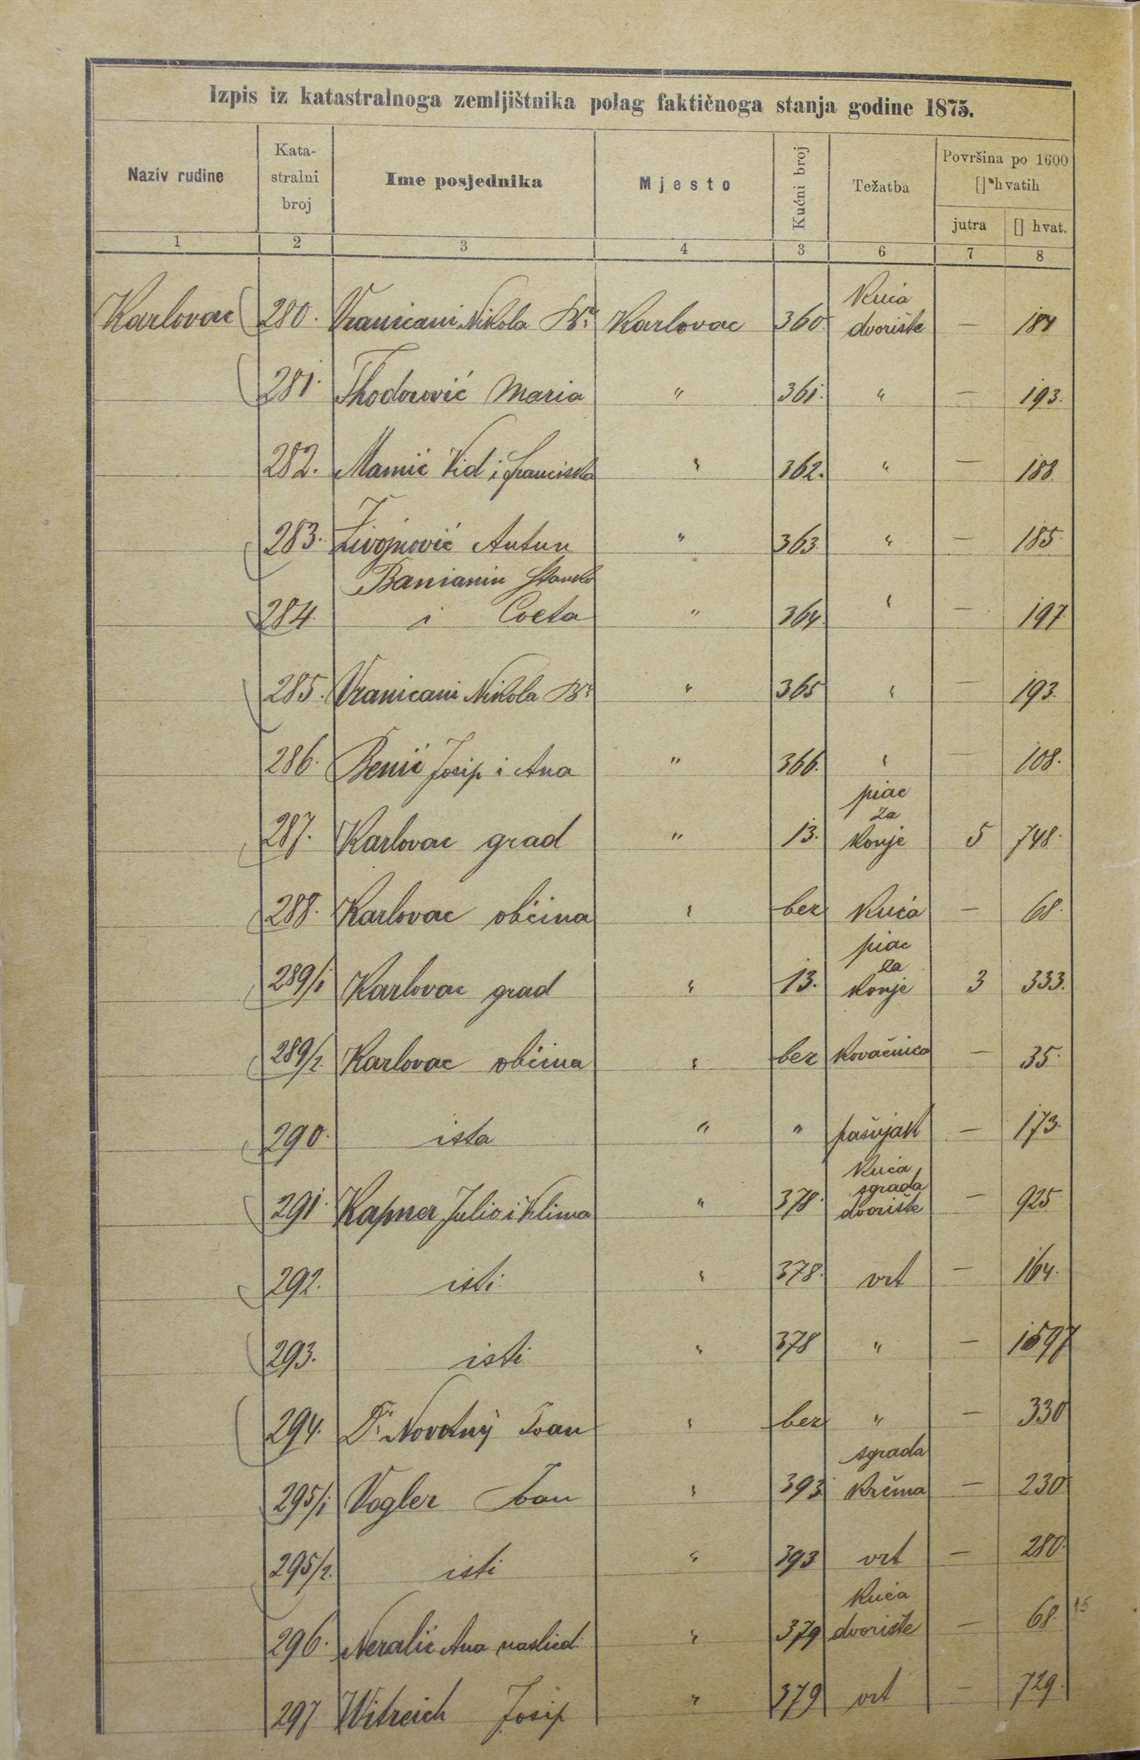 Izpis iz katastralnoga zemljištnika polag faktičnoga stanja godine 1875.
Naziv rudine | Kata-stralni broj | Ime posjednika | Mjesto | Kućni broj | Težatba | Površina po 1600 [] hvatih
jutra | [] hvat.
1 | 2 | 3 | 4 | 3 | 6 | 7 | 8
Karlovac | 280. | Vranicani Nikola Br. | Karlovac | 360 | Kuća dvorište | — | 184
281. | Thodorović Maria | " | 361. | " | — | 193.
282. | Mamić Vid i Franciska | " | 362. | " | — | 188.
283. | Živojnović Antun | " | 363 | " | — | 185.
284. | Banianin Stanko i Cveta | " | 364 | " | — | 197
285. | Vranicani Nikola Br. | " | 365 | " | — | 193.
286. | Benić Josip i Ana | " | 366. | " | — | 108.
287. | Karlovac grad | " | 13. | piac za konje | 5 | 748.
288. | Karlovac občina | " | bez | Kuća | — | 68.
289/1 | Karlovac grad | " | 13. | piac za konje | 3 | 333.
289/2. | Karlovac občina | " | bez | kovačnica | — | 35.
290. | ista | " | " | pašnjak | — | 173.
291. | Kapner Julio i Klima | " | 378. | Kuća sgrada dvorište | — | 925
292. | isti | " | 378. | vrt | — | 164.
293. | isti | " | 378 | " | — | 1597
294. | Dr. Novotný Ivan | " | bez | " | — | 330
295/1 | Vogler Ivan | " | 393 | sgrada krčma | — | 230
295/2. | isti | " | 393 | vrt | — | 280.
296. | Neralić Ana naslied. | " | 379 | Kuća dvorište | — | 68. 15
297 | Witreich Josip | " | 379 | vrt | — | 729.